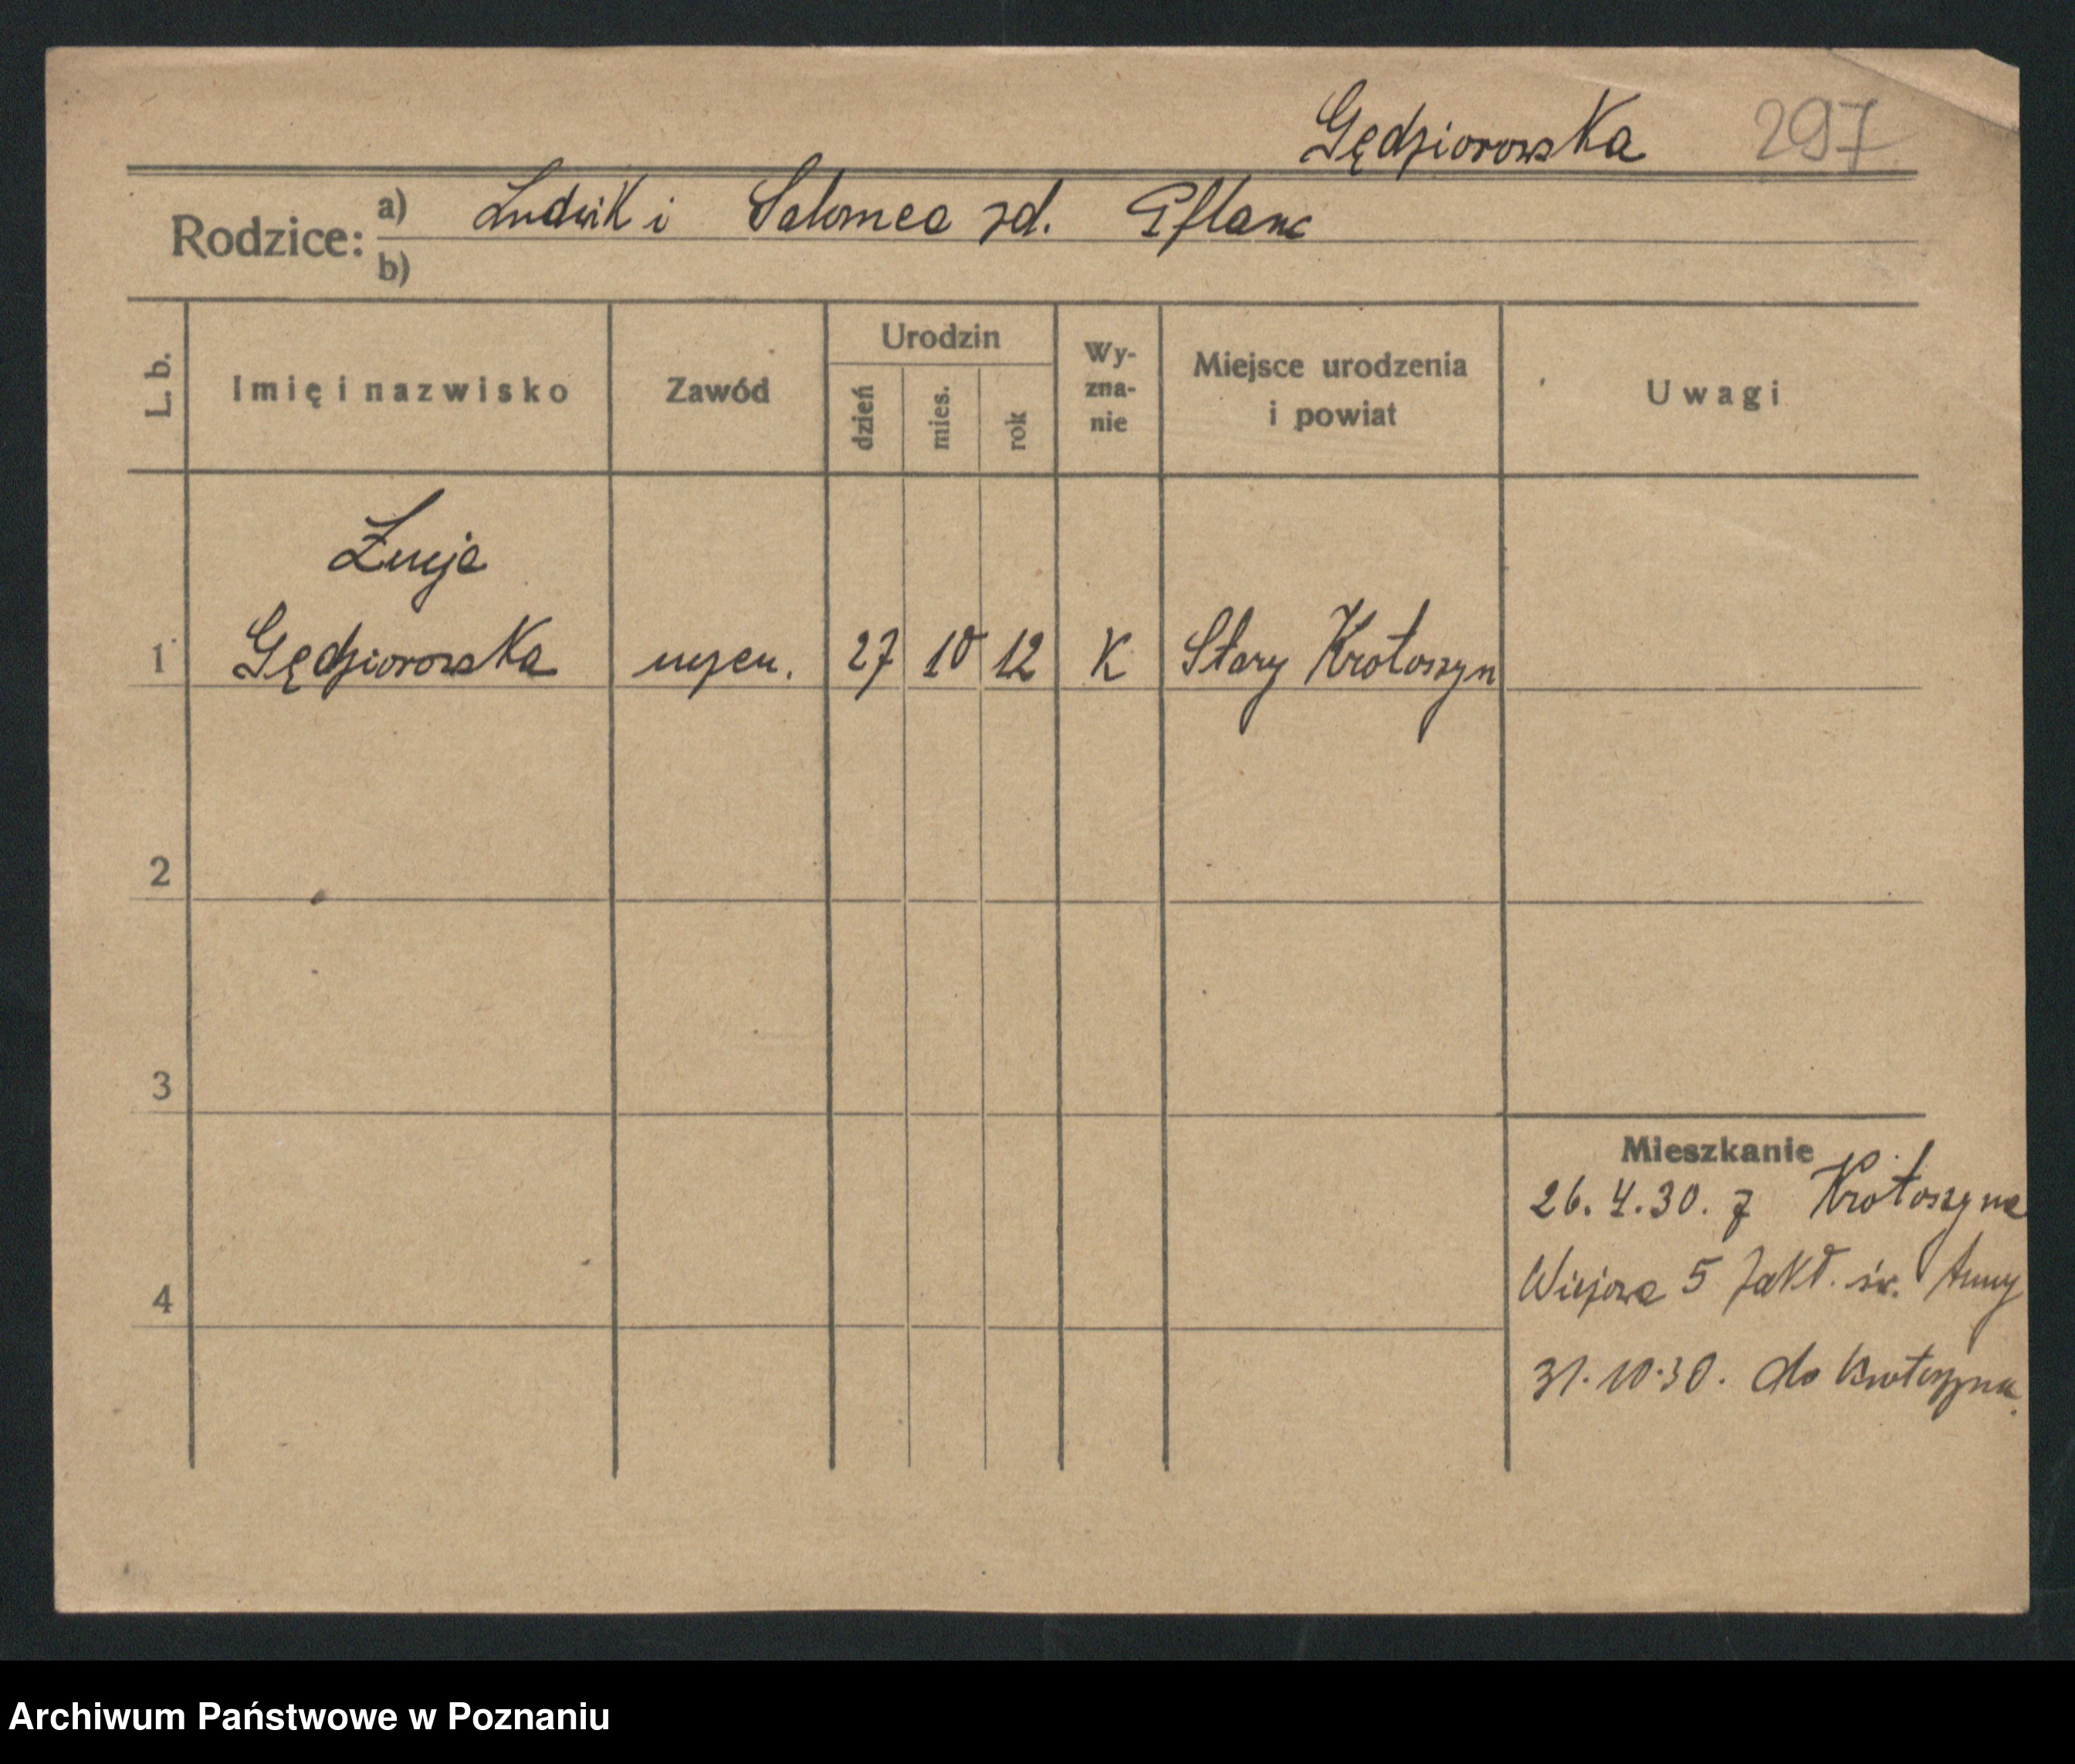 Gędziorowska 297
Rodzice: a) Ludwik i Salomea zd. Pflanc
b)
L. b. Imię i nazwisko Zawód Urodzin dzień mies. rok Wy-zna-nie Miejsce urodzenia i powiat Uwagi
Łucja
1 Gędziorowska uczen. 27 10 12 K Stary Krotoszyn
2
3
4
Mieszkanie
26.4.30. z Krotoszyna
5 Zakł. św. Anny
31.10.30. do Krotoszyna.
Archiwum Państwowe w Poznaniu